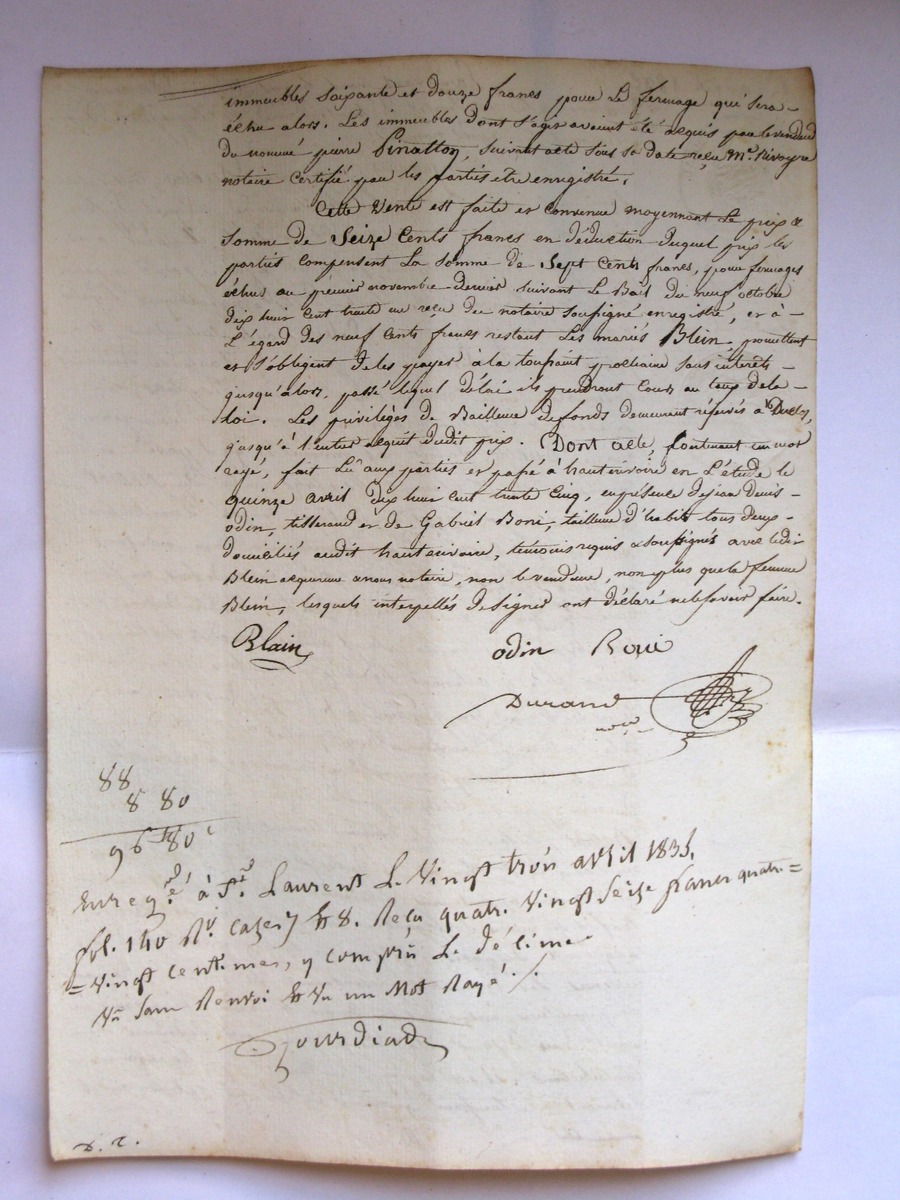 immeubles soixante et douze francs pour le fermage qui sera
échu alors. Les immeubles dont s'agit avaient été acquis par le vendeur
du nommé pierre Pinatton, suivant acte sous sa date reçu Me. Rivoyre
notaire certifié par les parties etre enregistré.
Cette vente est faite et convenue moyennant le prix &
somme de Seize Cents francs en déduction duquel prix les
parties compensent la somme de Sept Cents francs, pour fermages
échus au premier novembre dernier suivant le Bail du neuf octobre
dix huit cent trente un reçu du notaire soussigné enregistré, et à
L'égard des neuf cents francs restant les mariés Blein, promettent
et s'obligent de les payer à la toussaint prochaine sans interêts
jusqu'alors, passé lequel délai ils prendront cours au taux de la
loi. Les privilèges de Bailleur de fonds demeurent réservés a
jusqu'à l'entier acquit dudit prix. Dont acte, contenant un mot
rayé, fait lu aux parties et passé à hauterivoire en L'étude le
quinze avril dix huit cent trente cinq, en présence de jean Denis
odin, tisserand et de Gabriel Boni, tailleur d'habits tous deux
domiciliés audit hauterivoire, témoins requis & soussignés avec ledit
Blein acquereur & nous notaire, non le vendeur, non plus que la femme
Blein, lesquels interpellés de signer ont déclaré ne le savoir faire.
Blain
odin Boni
Durand
nore
88
8 80
96 f 80 c
Enregré à St. Laurent Le Vingt trois avril 1835,
fol. 140 Ro. Cases 7 & 8. Reçu quatre Vingt Seize francs quatre=
=Vingt centimes, y compris Le décime
Vu Sans Renvoi & Vu un Mot Rayé ./.
Jourdiad
D. C.